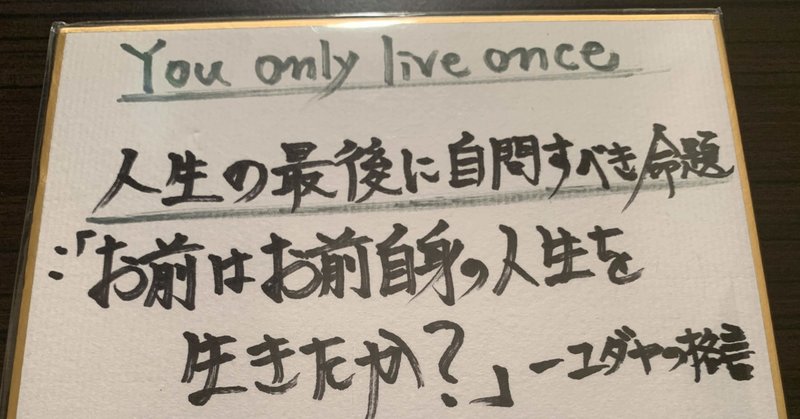 You only live once
人生の最後に自問すべき命題
:「お前はお前自身の人生を
生きたか?」ーユダヤの格言